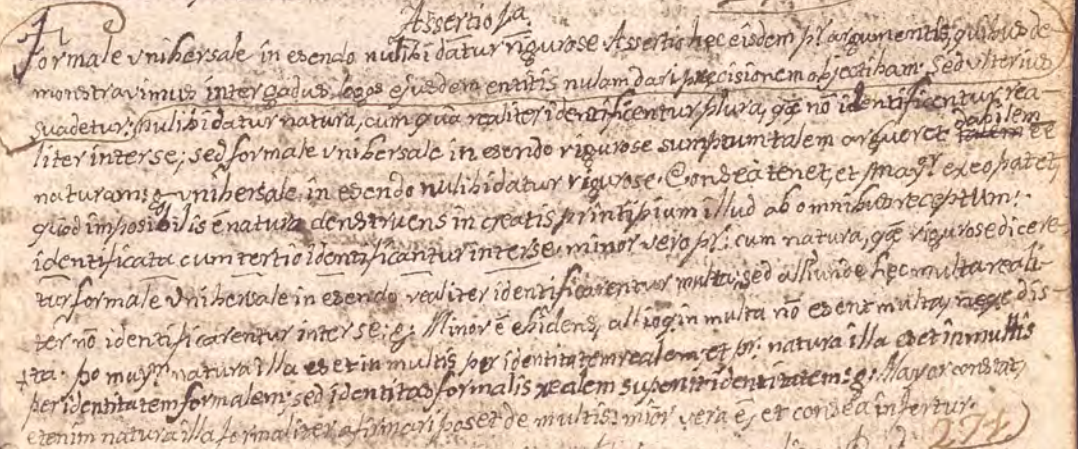 Assertio 1a.
Formale vnibersale in esendo nullibi datur rigurose Assertio hec eisdem pr. argumentis, quibus de-
monstravimus inter gradus logos ejusdem entitis nulam dari precisionem objectibam: Sed vlterius
suadetur: nulibi datur natura, cum qua realiter identificentur plura, quæ nō identificentur rea-
liter inter se; sed formale vnibersale in esendo rigurose sumptum talem argueret dabilem ēē
naturam: g. vnibersale in esendo nulibi datur rigurose. Consea tenet, et maygr exeo patet,
quod imposibilis ē natura denstruens in creatis printipium illud ab omnibus receptum:
identificata cum tertio identificantur inter se. minor vero pr: cum natura, quæ rigurose dicere-
tur formale vnibersale in esendo realiter identificarentur multa; sed alliunde hec multa reali-
ter nō identificarentur inter se: g: Minor ē ebidens, allioqin multa nō esent multa, neqe dis-
ta: po mayrm natura illa eset in multis per identitatem realem: et pr: natura illa eset in multis
per identitatem formalem; sed identitas formalis realem suponit identitatem: g: Mayor constat,
etenim natura illa formaliter afirmari poset de multis: mior vera ē, et consea infertur.
274